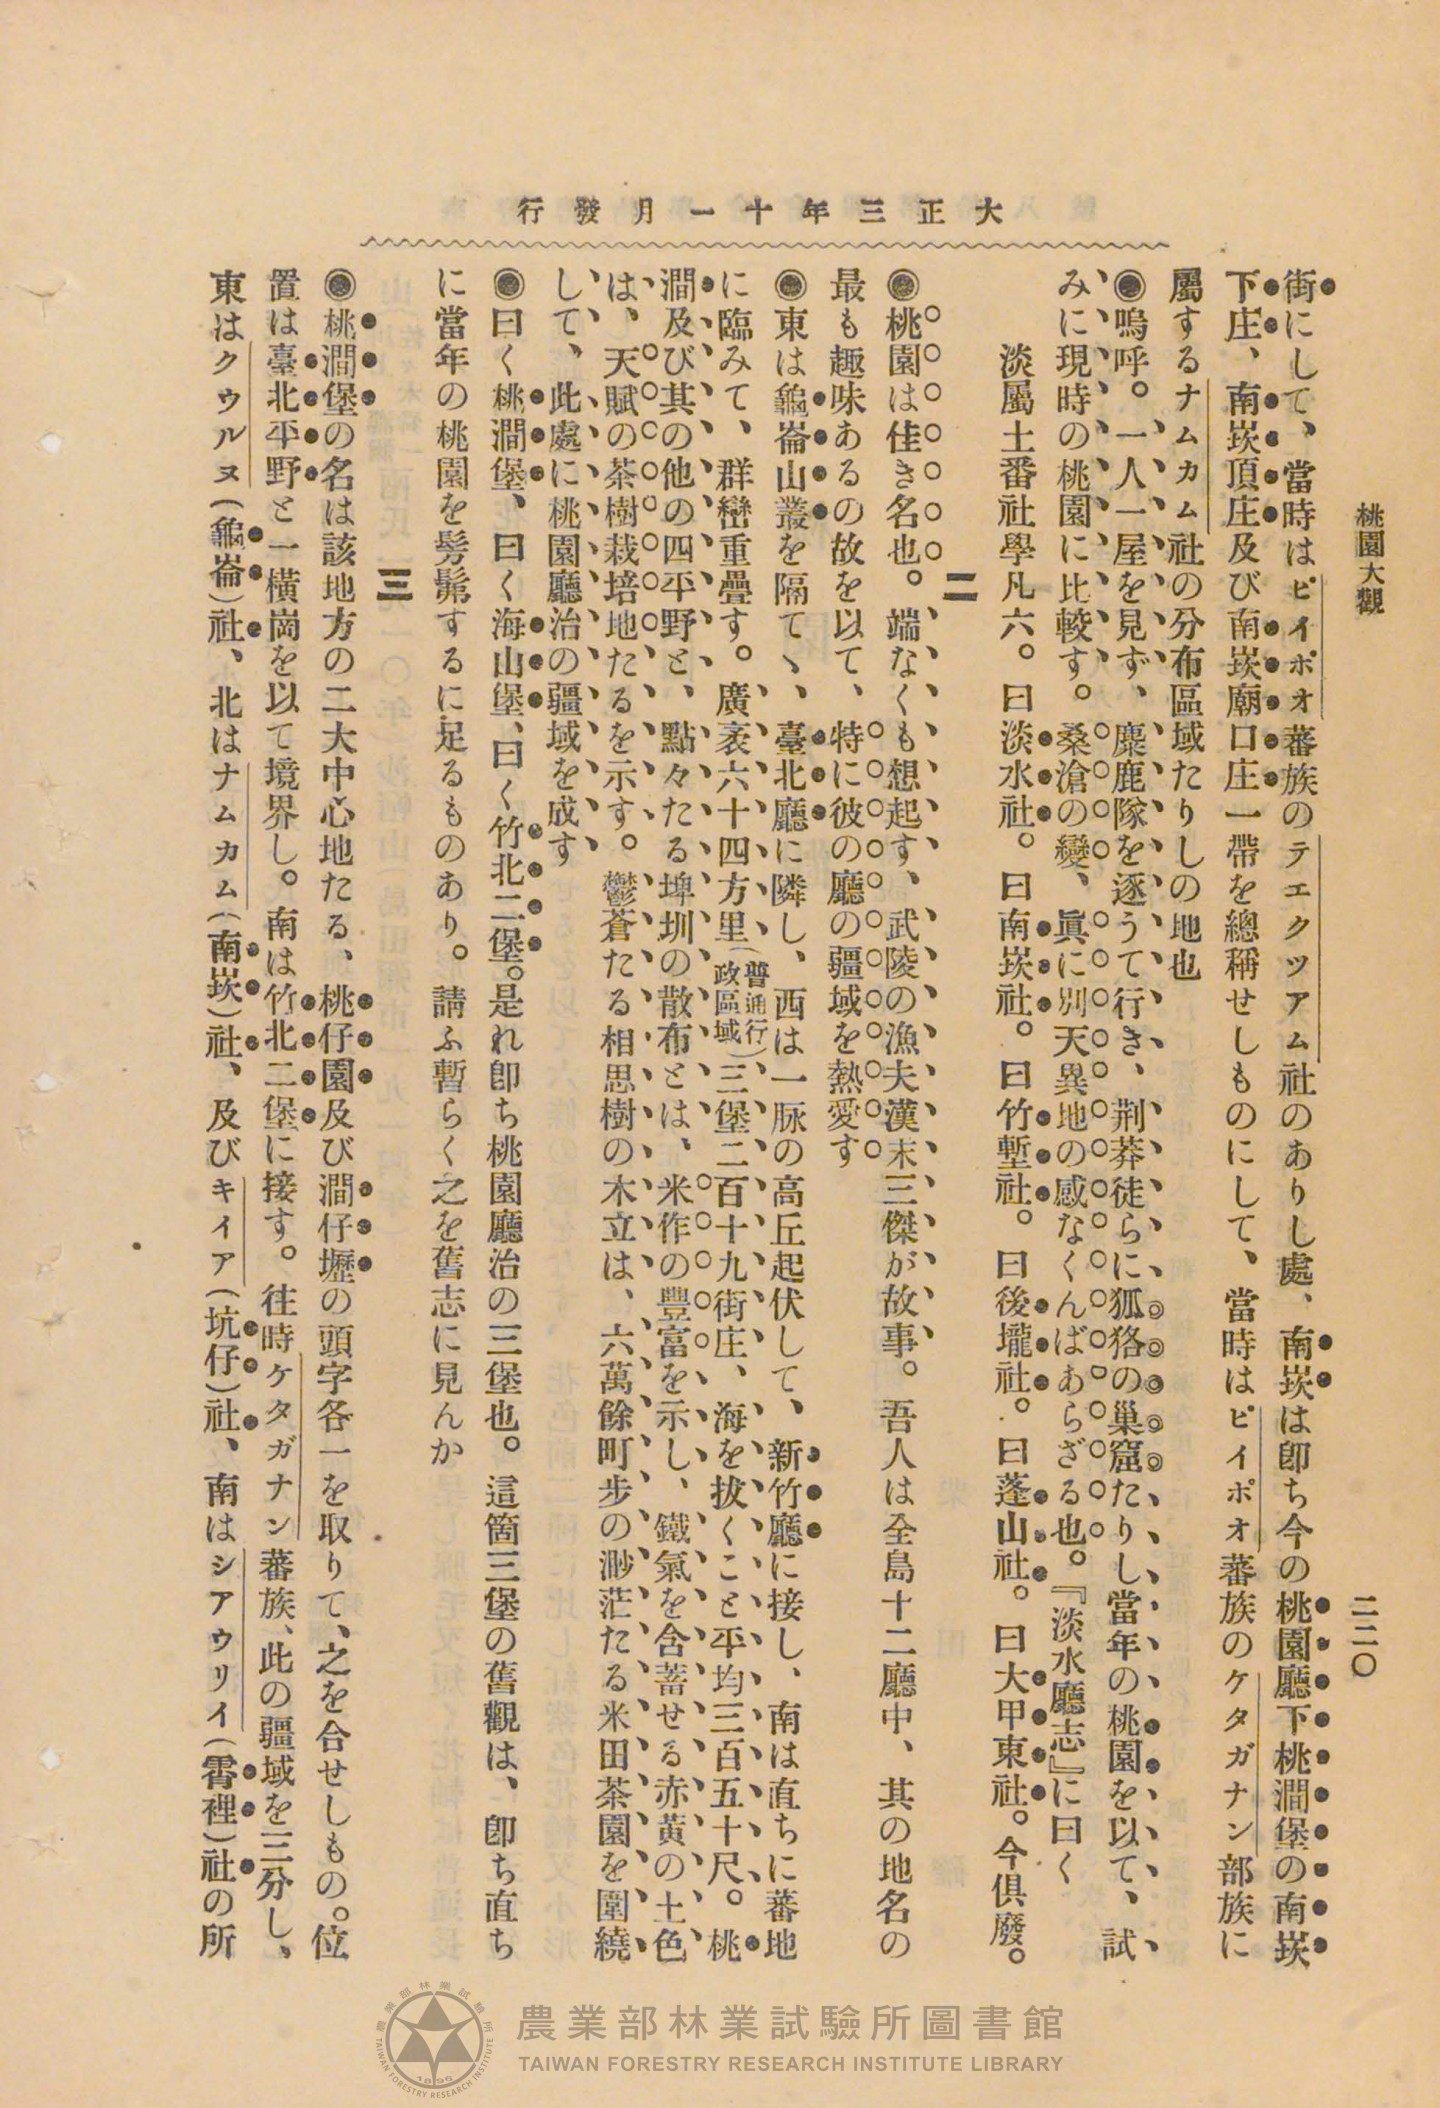 大正三年十一月發行
桃園大觀
二二〇
街にして、當時はピイポオ蕃族のテエクツアム社のありし處、南崁は卽ち今の桃園廳下桃澗堡の南崁
下庄、南崁頂庄及び南崁廟口庄一帶を總稱せしものにして、當時はピイポオ蕃族のケタガナン部族に
屬するナムカム社の分布區域たりしの地也
◉嗚呼。一人一屋を見ず、麋鹿隊を逐うて行き、荆莽徒らに狐狢の巢窟たりし當年の桃園を以て、試
みに現時の桃園に比較す。桑滄の變、眞に別天異地の感なくんばあらざる也。『淡水廳志』に曰く
淡屬土番社學凡六。曰淡水社。曰南崁社。曰竹塹社。曰後壠社。曰蓬山社。曰大甲東社。今俱廢。
二
◉桃園は佳き名也。端なくも想起す、武陵の漁夫漢末三傑が故事。吾人は全島十二廳中、其の地名の
最も趣味あるの故を以て、特に彼の廳の疆域を熱愛す
◉東は龜崙山叢を隔てヽ、臺北廳に隣し、西は一脉の高丘起伏して、新竹廳に接し、南は直ちに蕃地
に臨みて、群巒重疊す。廣袤六十四方里(普通行政區域)三堡二百十九街庄、海を拔くこと平均三百五十尺。桃
澗及び其の他の四平野と、點々たる埤圳の散布とは、米作の豐富を示し、鐵氣を含蓄せる赤黃の土色
は、天賦の茶樹栽培地たるを示す。鬱蒼たる相思樹の木立は、六萬餘町步の渺茫たる米田茶園を圍繞
して、此處に桃園廳治の疆域を成す
◉曰く桃澗堡、曰く海山堡、曰く竹北二堡。是れ卽ち桃園廳治の三堡也。這箇三堡の舊觀は、卽ち直ち
に當年の桃園を髣髴するに足るものあり。請ふ暫らく之を舊志に見んか
三
◉桃澗堡の名は該地方の二大中心地たる、桃仔園及び澗仔壢の頭字各一を取りて、之を合せしもの。位
置は臺北平野と一橫崗を以て境界し。南は竹北二堡に接す。往時ケタガナン蕃族、此の疆域を三分し、
東はクゥルヌ(龜崙)社、北はナムカム(南崁)社、及びキィア(坑仔)社、南はシアゥリイ(霄裡)社の所
農業部林業試驗所圖書館
TAIWAN FORESTRY RESEARCH INSTITUTE LIBRARY
農業部林業試驗所
TAIWAN FORESTRY RESEARCH INSTITUTE
1896